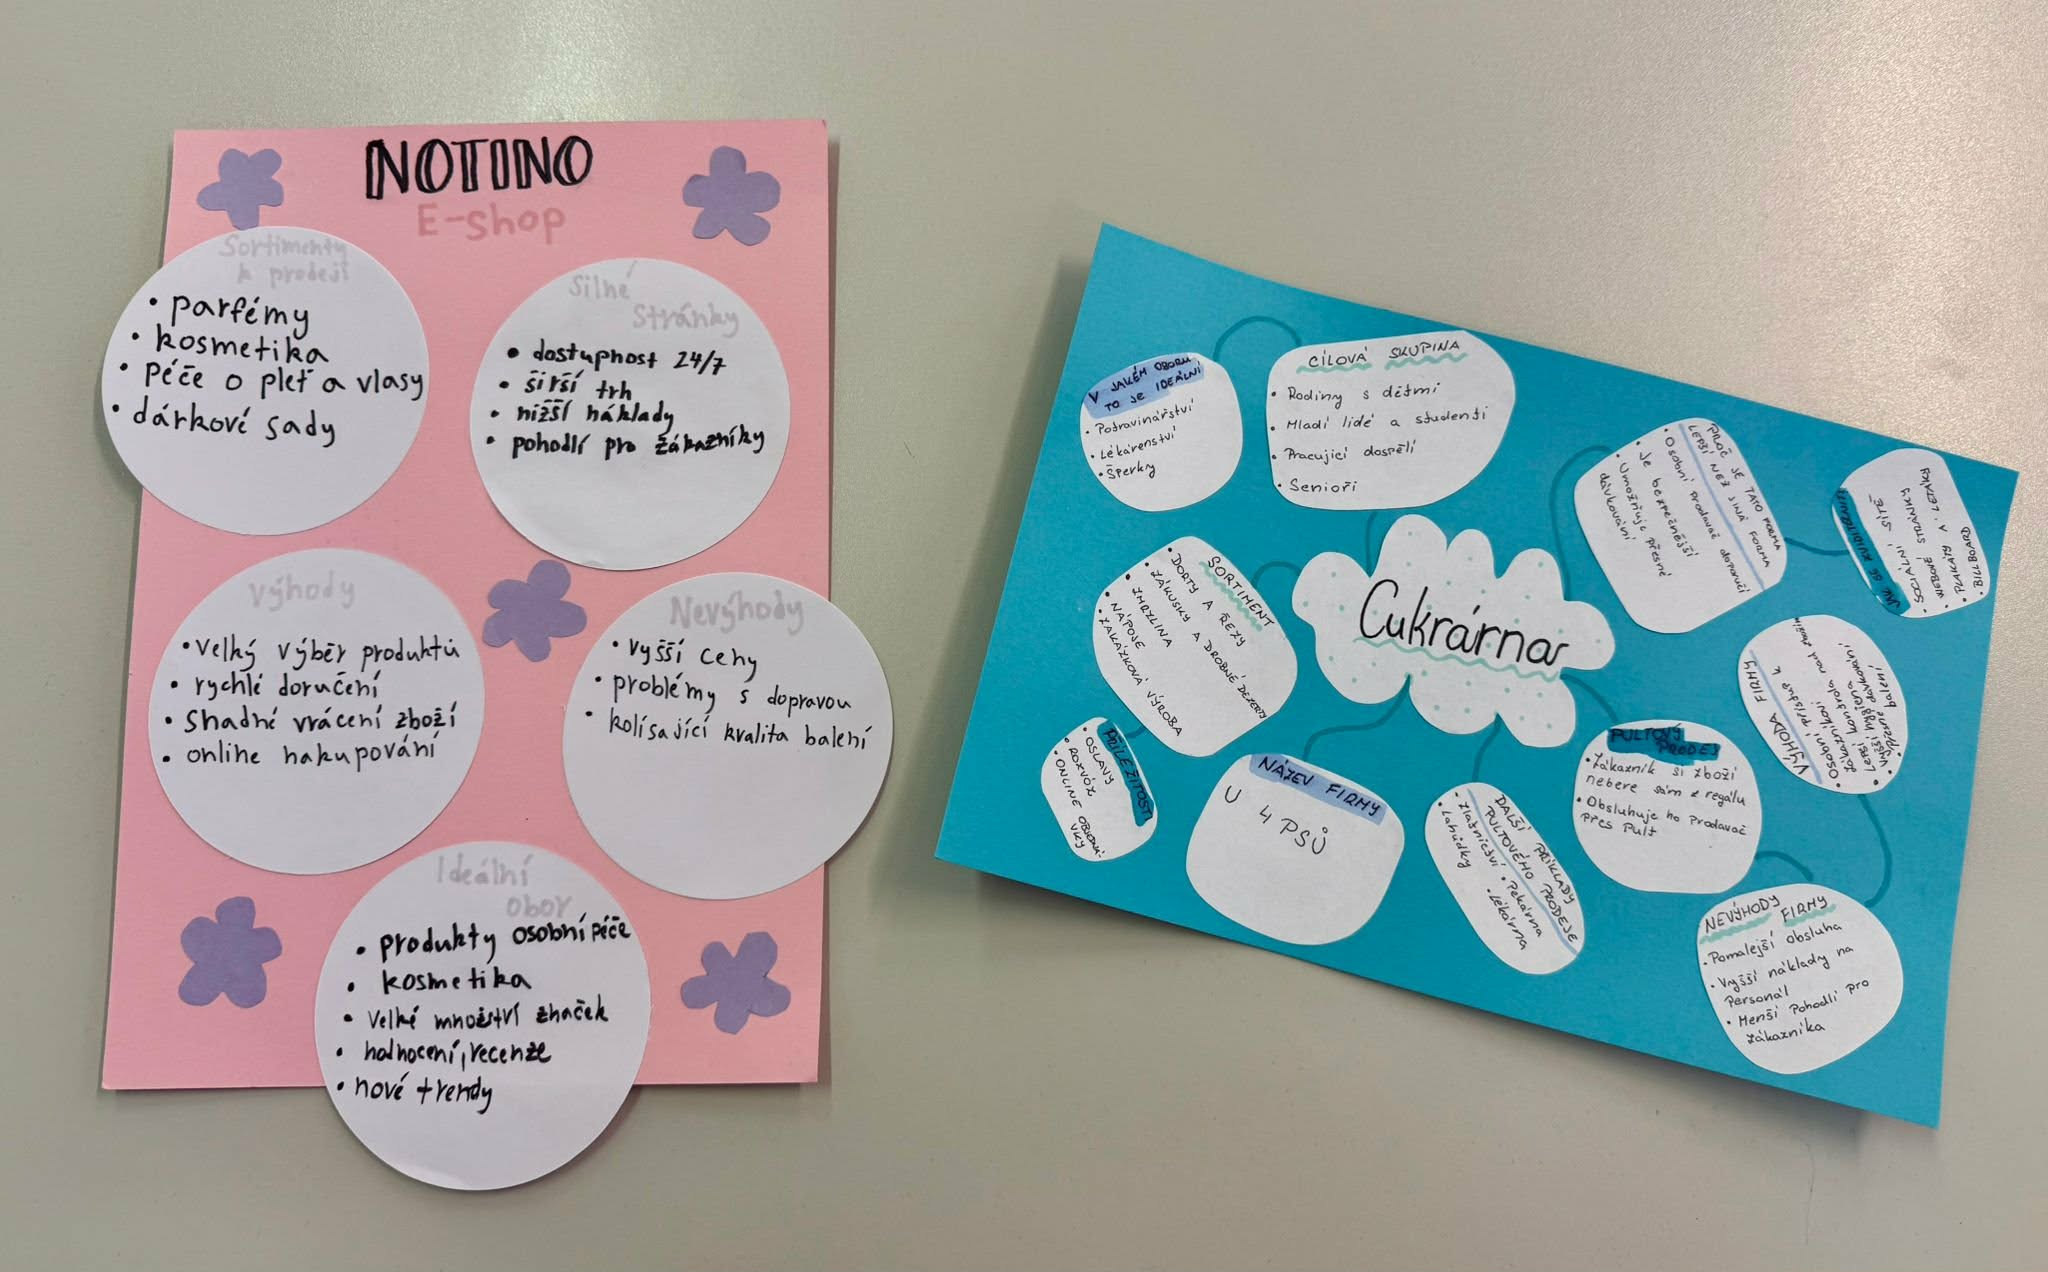 NOTINO
E-shop
Sortimenty
k prodeji
• parfémy
• kosmetika
• péče o pleť a vlasy
• dárkové sady
Silné
stránky
• dostupnost 24/7
• širší trh
• nižší náklady
• pohodlí pro zákazníky
Výhody
• velký výběr produktů
• rychlé doručení
• snadné vrácení zboží
• online nakupování
Nevýhody
• vyšší ceny
• problémy s dopravou
• kolísající kvalita balení
Ideální
obor
• produkty osobní péče
• kosmetika
• velké množství značek
• hodnocení, recenze
• nové trendy
V JAKÉM OBORU
TO JE IDEÁLNÍ
• Potravinářství
• Lékárenství
• Šperky
CÍLOVÁ SKUPINA
• Rodiny s dětmi
• Mladí lidé a studenti
• Pracující dospělí
• Senioři
PROČ JE TATO FORMA
LEPŠÍ NEŽ JINÁ FORMA
• Osobní prodavač doporučí
• Je bezpečnější
• Umožňuje přesné
dávkování
JAK SE ZVIDITELNIT
• SOCIÁLNÍ SÍTĚ
• WEBOVÉ STRÁNKY
• PLAKÁTY A LETÁKY
• BILLBOARD
SORTIMENT
• DORTY A ŘEZY
• ZÁKUSKY A DROBNÉ DEZERTY
• ZMRZLINA
• NÁPOJE
• ZAKÁZKOVÁ VÝROBA
Cukrárna
VÝHODA FIRMY
• Osobní přístup k
zákazníkovi
• Lepší kontrola nad zbožím
• Vyšší hygiena
• balení
PŘÍLEŽITOSTI
• OSLAVY
• ROZVOZ
• ONLINE OBJEDNÁ-
VKY
NÁZEV FIRMY
U 4 PSŮ
DALŠÍ PŘÍKLADY
PULTOVÉHO PRODEJE
• Zlatnictví • Pekárna
• Lahůdky • Lékárna
PULTOVÝ
PRODEJ
• Zákazník si zboží
nebere sám z regálu
• Obsluhuje ho Prodavač
přes Pult
NEVÝHODY FIRMY
• Pomalejší obsluha
• Vyšší náklady na
Personál
• Menší Pohodlí pro
zákazníka